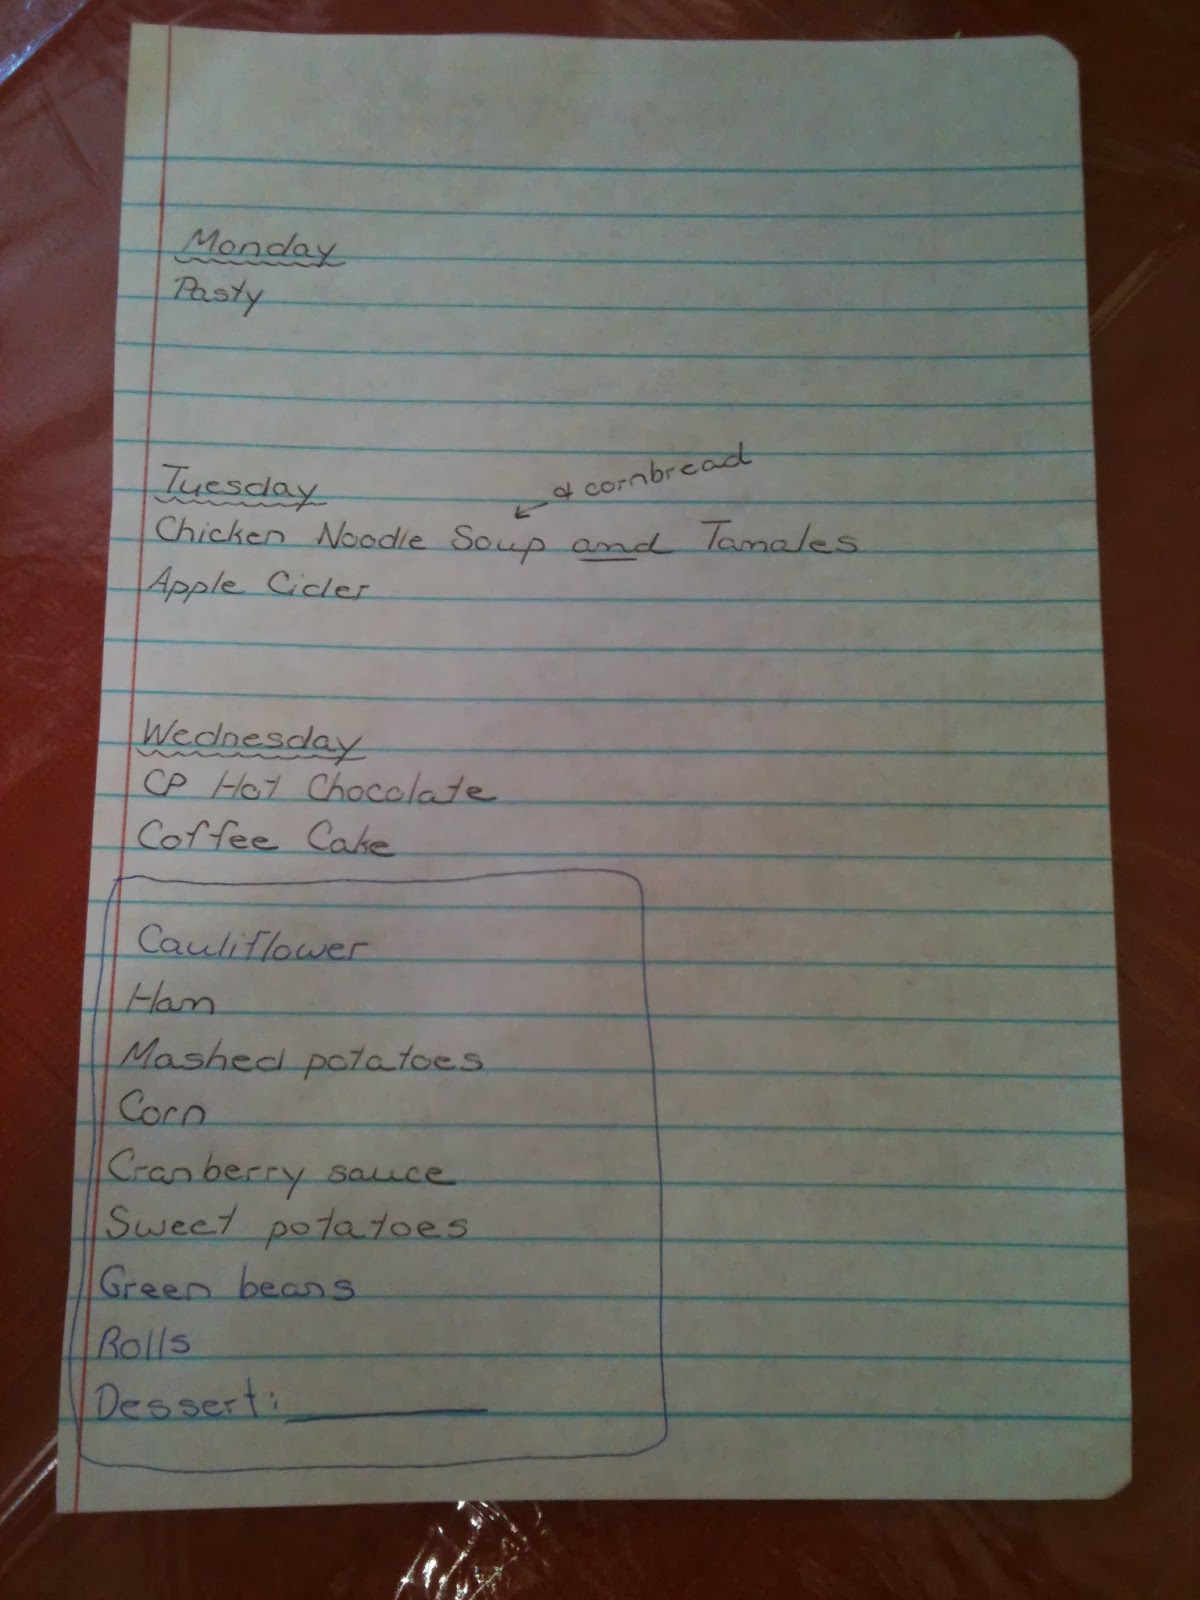 Monday
Pasty
Tuesday
& cornbread
Chicken Noodle Soup and Tamales
Apple Cider
Wednesday
CP Hot Chocolate
Coffee Cake
Cauliflower
Ham
Mashed potatoes
Corn
Cranberry sauce
Sweet potatoes
Green beans
Rolls
Dessert: